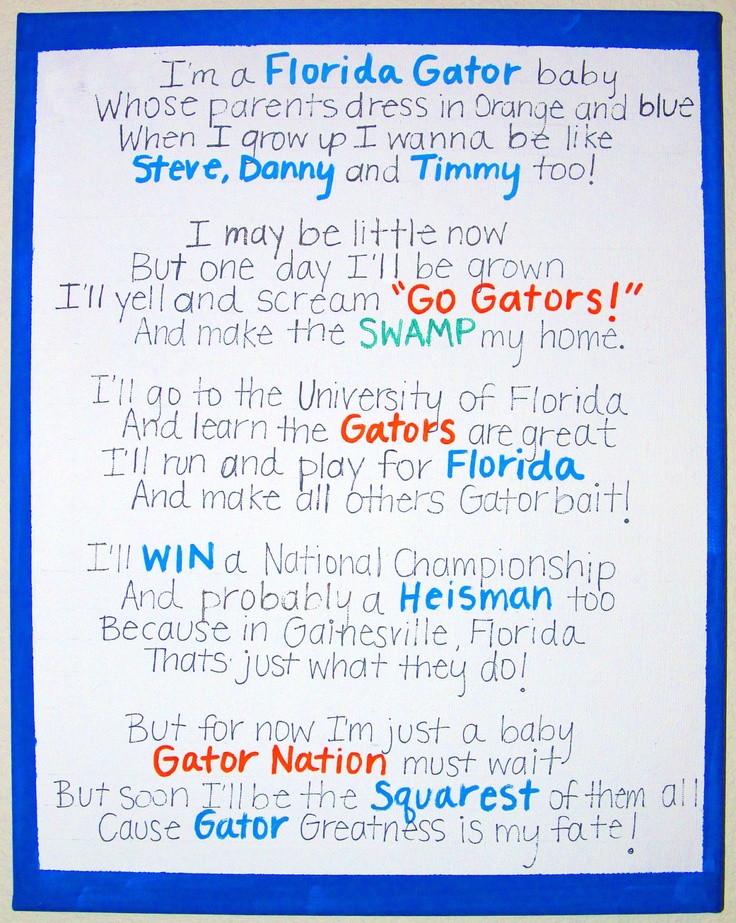 I'm a Florida Gator baby
Whose parents dress in Orange and blue
When I grow up I wanna be like
Steve, Danny and Timmy too!
I may be little now
But one day I'll be grown
I'll yell and scream "Go Gators!"
And make the SWAMP my home.
I'll go to the University of Florida
And learn the Gators are great
I'll run and play for Florida
And make all others Gator bait!
I'll WIN a National Championship
And probably a Heisman too
Because in Gainesville, Florida
Thats just what they do!
But for now I'm just a baby
Gator Nation must wait
But soon I'll be the Squarest of them all
Cause Gator Greatness is my fate!